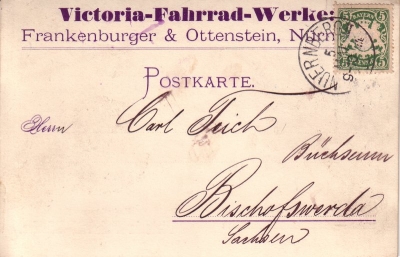 Victoria-Fahrrad-Werke:
Frankenburger & Ottenstein, Nürn
5 BAYERN 5
NUERNBERG
POSTKARTE.
Herrn
Carl Teich
Bischofswerda
Sachsen